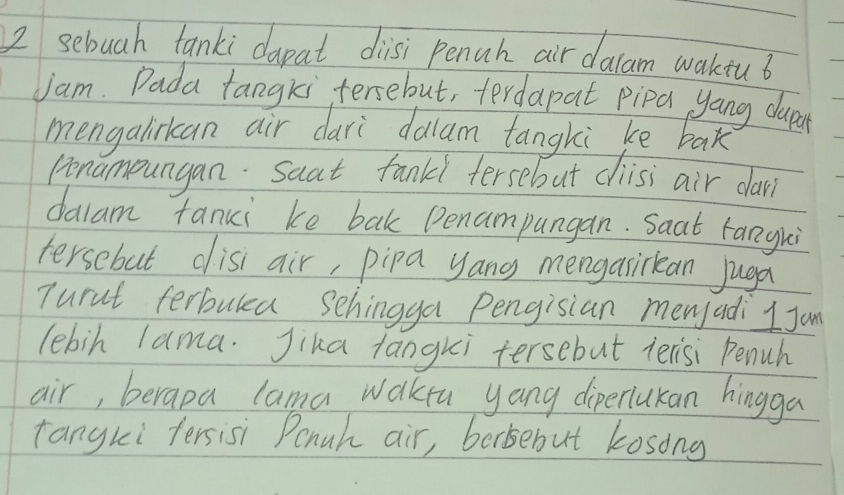 2 sebuah tanki dapat diisi penuh air dalam waktu 6
jam. Pada tangki tersebut, terdapat pipa yang dapat
mengalirkan air dari dalam tangki ke bak
Penampungan. Saat tanki tersebut diisi air dari
dalam tanki ke bak Penampungan. Saat tangki
tersebut disi air, pipa yang mengasirkan juga
Turut terbuka sehingga Pengisian menjadi 1 Jam
lebih lama. Jika tangki tersebut terisi Penuh
air, berapa lama waktu yang diperlukan hingga
tangki tersisi Penuh air, berbebut kosong